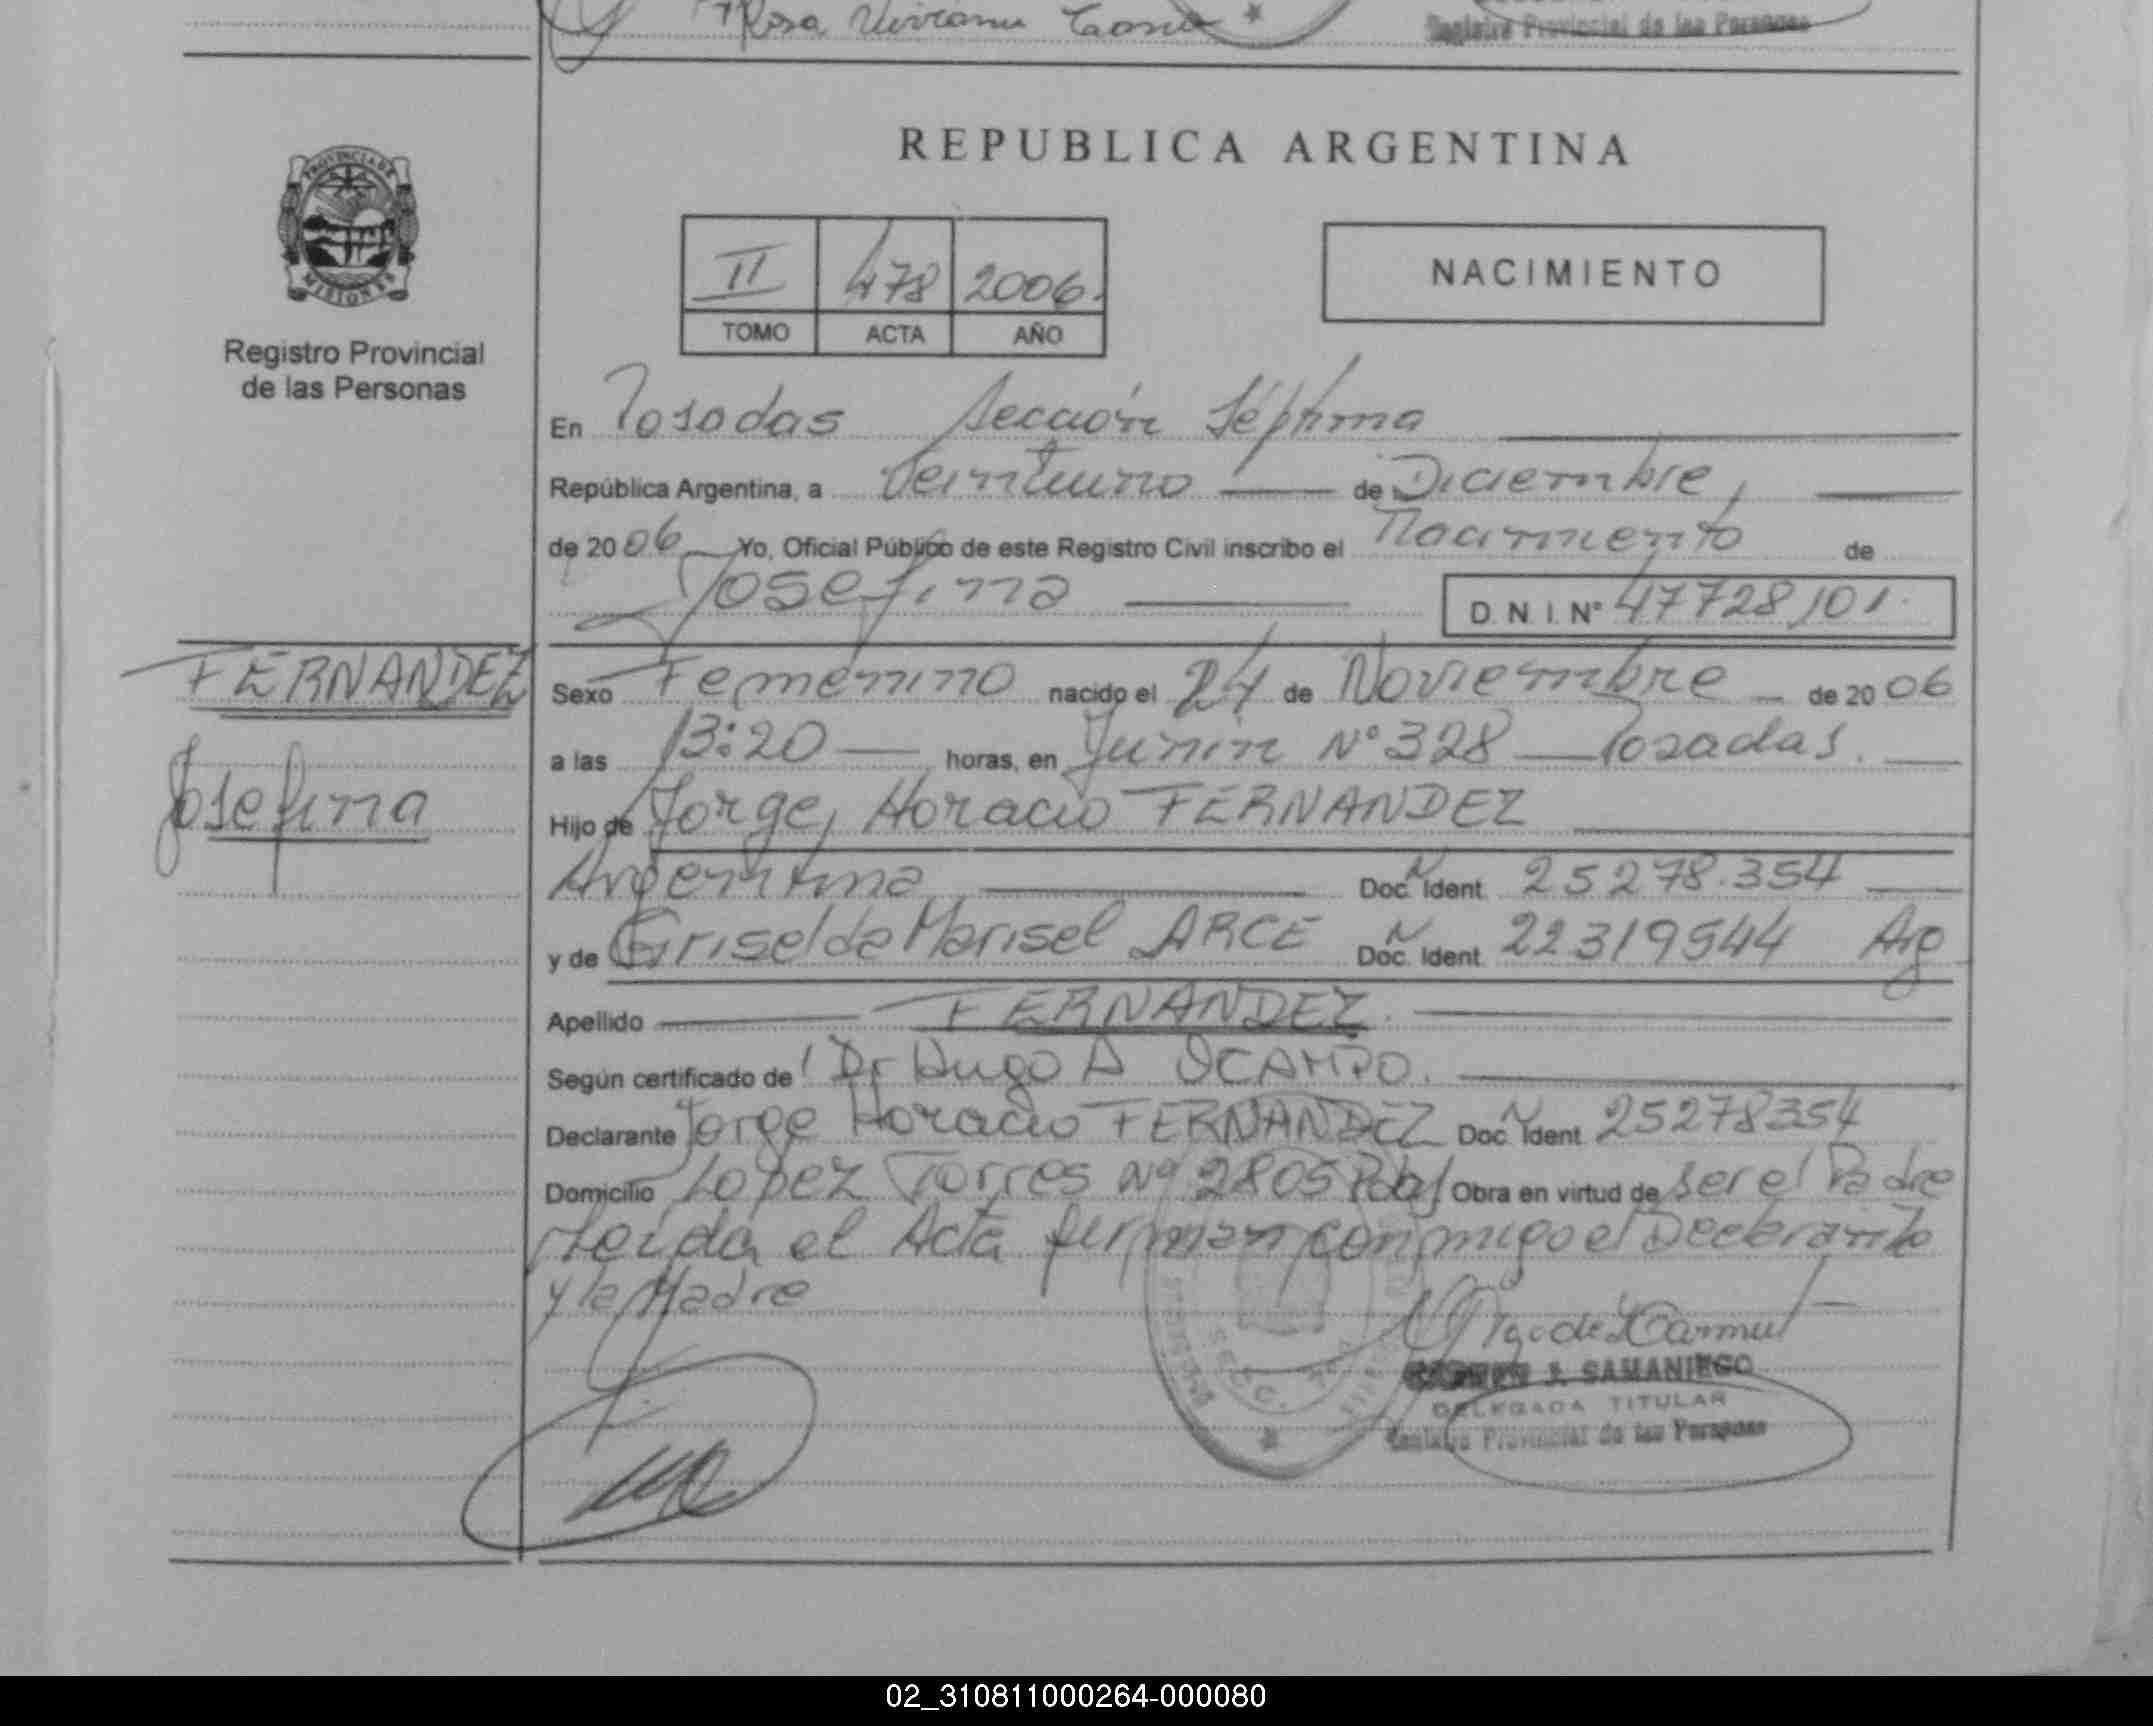 Rosa Viviana
Registro Provincial de las Personas
PROVINCIA DE
MISIONES
Registro Provincial
de las Personas
REPUBLICA ARGENTINA
II 478 2006.
TOMO ACTA AÑO
NACIMIENTO
En Posadas Sección Séptima
República Argentina, a Veintiuno de Diciembre,
de 2006 Yo, Oficial Público de este Registro Civil inscribo el Nacimiento de
Josefina
D. N. I. N° 47728101.
FERNANDEZ
Josefina
Sexo Femenino nacido el 24 de Noviembre de 2006
a las 13:20 horas, en Junin N° 328 Posadas.
Hijo de Jorge Horacio FERNANDEZ
Argentina Doc. Ident. 25278.354
y de Griselda Marisel ARCE Doc. Ident. 22319544 Arg
Apellido FERNANDEZ.
Según certificado de Dr Hugo A OCAMPO.
Declarante Jorge Horacio FERNANDEZ Doc. Ident 25278354
Domicilio Lopez Torres Nº 2805 Pdas Obra en virtud de ser el Padre
Leida el Acta firman conmigo el Declarante
y la Madre
SECC. 7MA
J. SAMANIEGO
DELEGADA TITULAR
Registro Provincial de las Personas
02_310811000264-000080